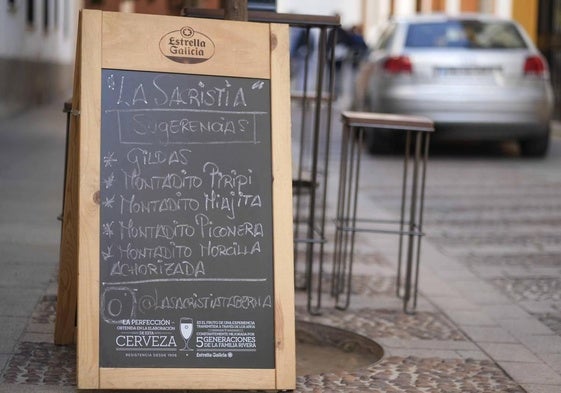 Estrella
Galicia
"LA SACRISTIA"
SUGERENCIAS
* GILDAS
* MONTADITO PIRIPI
* MONTADITO MIAJITA
* MONTADITO PICONERA
* MONTADITO MORCILLA
ACHORIZADA
@LASACRISTIATABERNA
LA PERFECCIÓN
OBTENIDA EN LA ELABORACIÓN
DE ESTA
CERVEZA
RESISTENCIA DESDE 1906
ES EL FRUTO DE LA EXPERIENCIA
TRANSMITIDA A TRAVÉS DE LOS AÑOS
CONSTANTEMENTE MEJORADA POR
5 GENERACIONES
DE LA FAMILIA RIVERA
Estrella Galicia